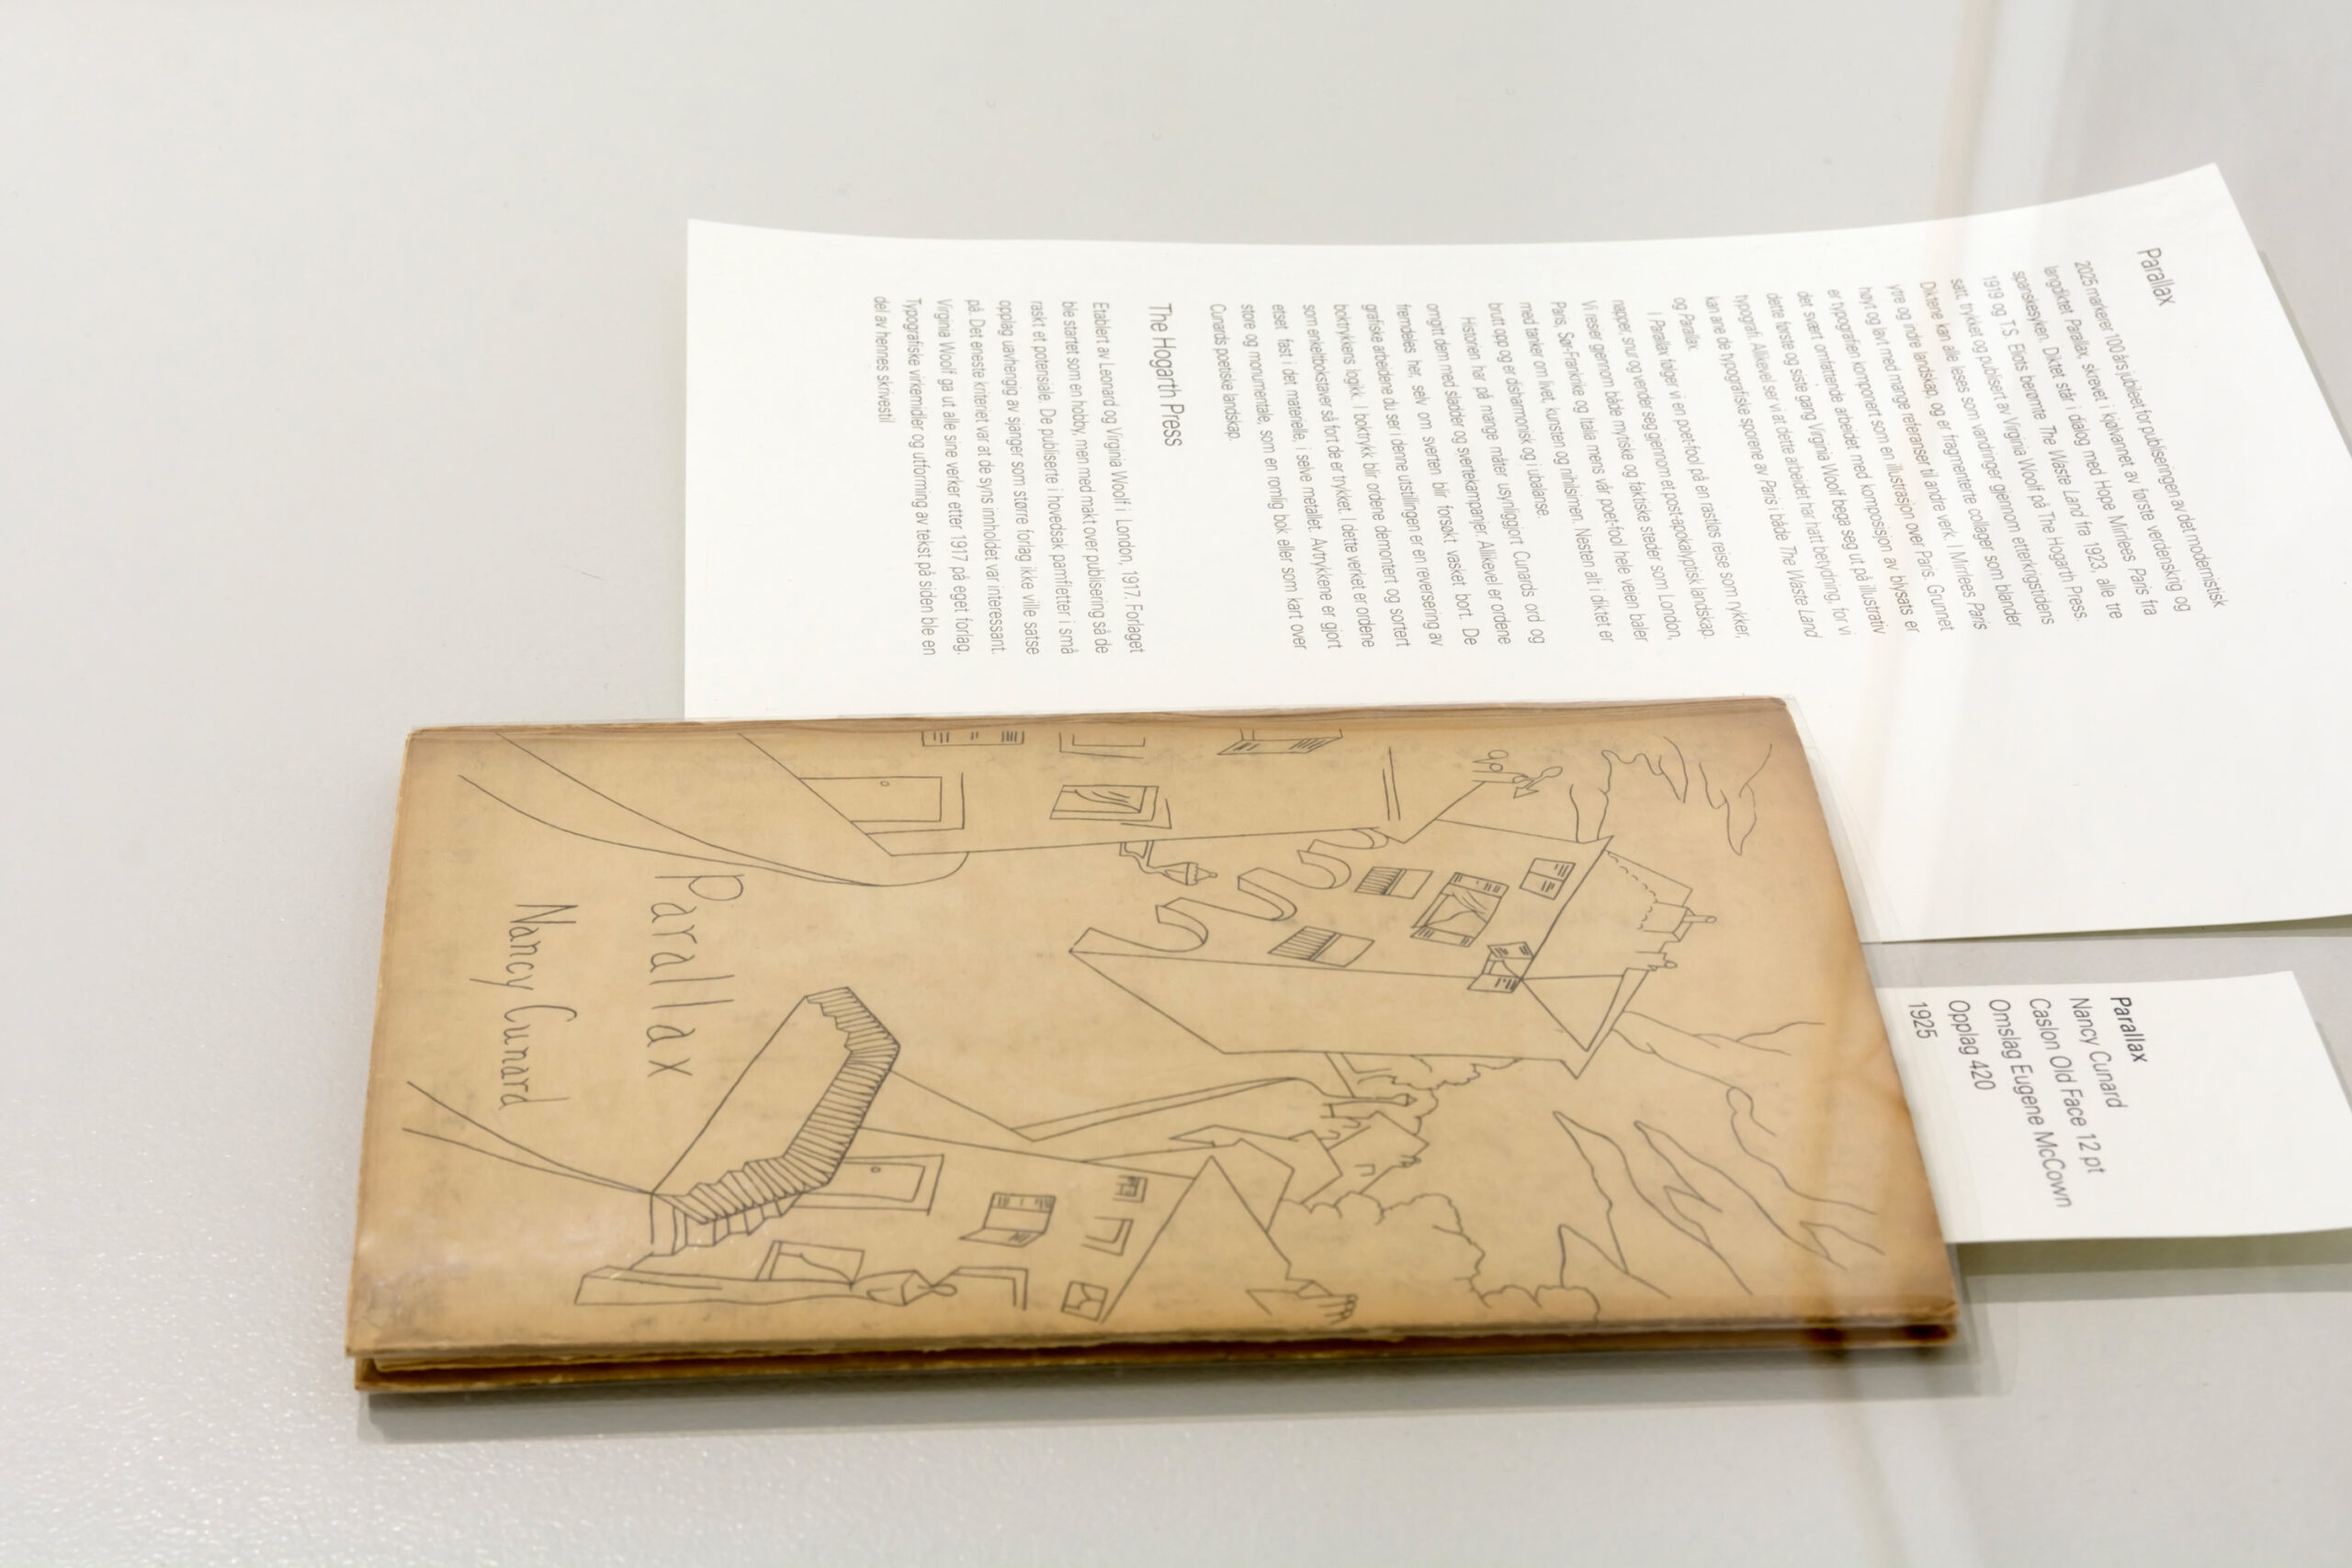 Parallax
2025 markerer 100 års jubileet for publiseringen av det modernistisk
langdiktet Parallax, skrevet i kjølvannet av første verdenskrig og
spanskesyken. Diktet står i dialog med Hope Mirrlees Paris fra
1919 og T.S. Eliots berømte The Waste Land fra 1923, alle tre
satt, trykket og publisert av Virginia Woolf på The Hogarth Press.
Diktene kan alle leses som vandringer gjennom etterkrigstidens
ytre og indre landskap, og er fragmenterte collager som blander
høyt og lavt med mange referanser til andre verk. I Mirrlees Paris
er typografien komponert som en illustrasjon over Paris. Grunnet
det svært omfattende arbeidet med komposisjon av blysats er
dette første og siste gang Virginia Woolf bega seg ut på illustrativ
typografi. Allikevel ser vi at dette arbeidet har hatt betydning, for vi
kan ane de typografiske sporene av Paris i både The Waste Land
og Parallax.
I Parallax følger vi en poet-fool på en rastløs reise som rykker,
napper, snur og vender seg gjennom et post-apokalyptisk landskap.
Vi reser gjennom både mytiske og faktiske steder som London,
Paris, Sør-Frankrike og Italia mens vår poet-fool hele veien baler
med tanker om livet, kunsten og nihilsimen. Nesten alt i diktet er
brutt opp og er disharmonisk og i ubalanse.
Historien har på mange måter usynliggjort Cunards ord og
omgitt dem med sladder og svertekampanjer. Allikevel er ordene
fremdeles her, selv om sverten blir forsøkt vasket bort. De
grafiske arbeidene du ser i denne utstillingen er en reversering av
boktrykkens logikk. I boktrykk blir ordene demontert og sortert
som enkeltbokstaver så fort de er trykket. I dette verket er ordene
etset fast i det materielle, i selve metallet. Avtrykkene er gjort
store og monumentale, som en romlig bok eller som kart over
Cunards poetiske landskap.
The Hogarth Press
Etablert av Leonard og Virginia Woolf i London, 1917. Forlaget
ble startet som en hobby, men med makt over publisering så de
raskt et potensiale. De publiserte i hovedsak pamfletter i små
opplag uavhengig av sjanger som større forlag ikke ville satse
på. Det eneste kriteriet var at de syns innholdet var interessant.
Virginia Woolf ga ut alle sine verker etter 1917 på eget forlag.
Typografiske virkemidler og utforming av tekst på siden ble en
del av hennes skrivestil
Parallax
Nancy Cunard
Caslon Old Face 12 pt
Omslag Eugene McCown
Opplag 420
1925
Parallax
Nancy Cunard